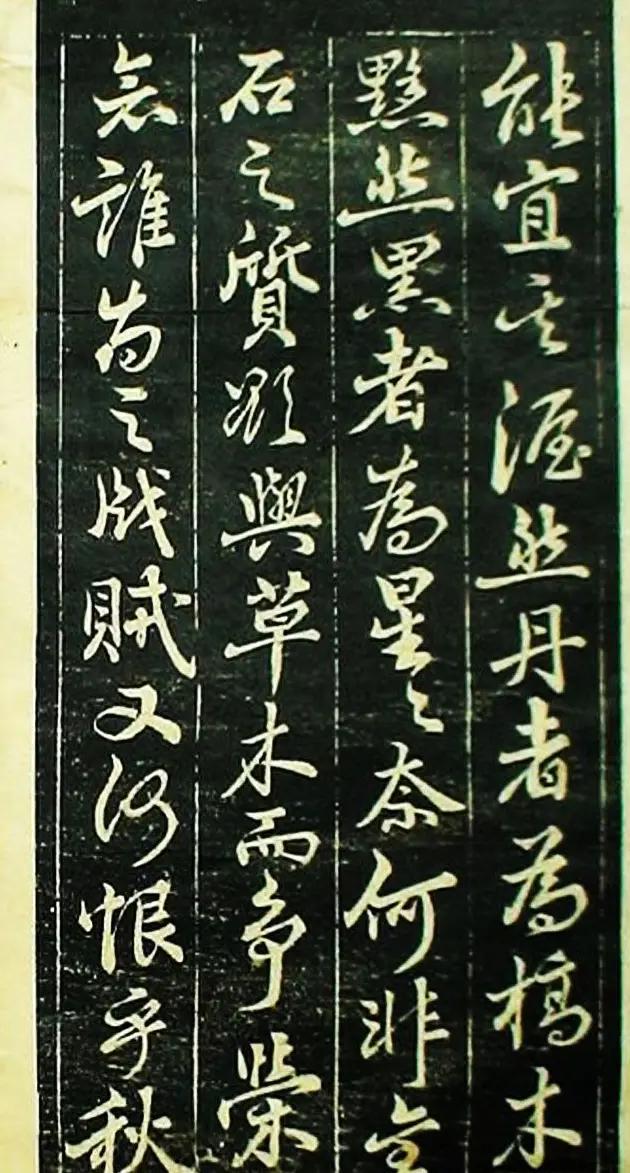 能宜其渥然丹者為槁木
黟然黑者為星〻奈何非金
石之質欲與草木而争榮
念誰為之戕賊又何恨乎秋